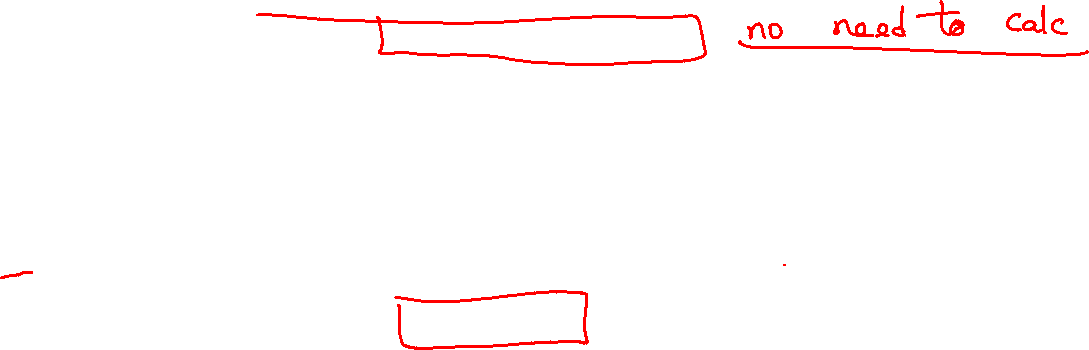 no need to calc